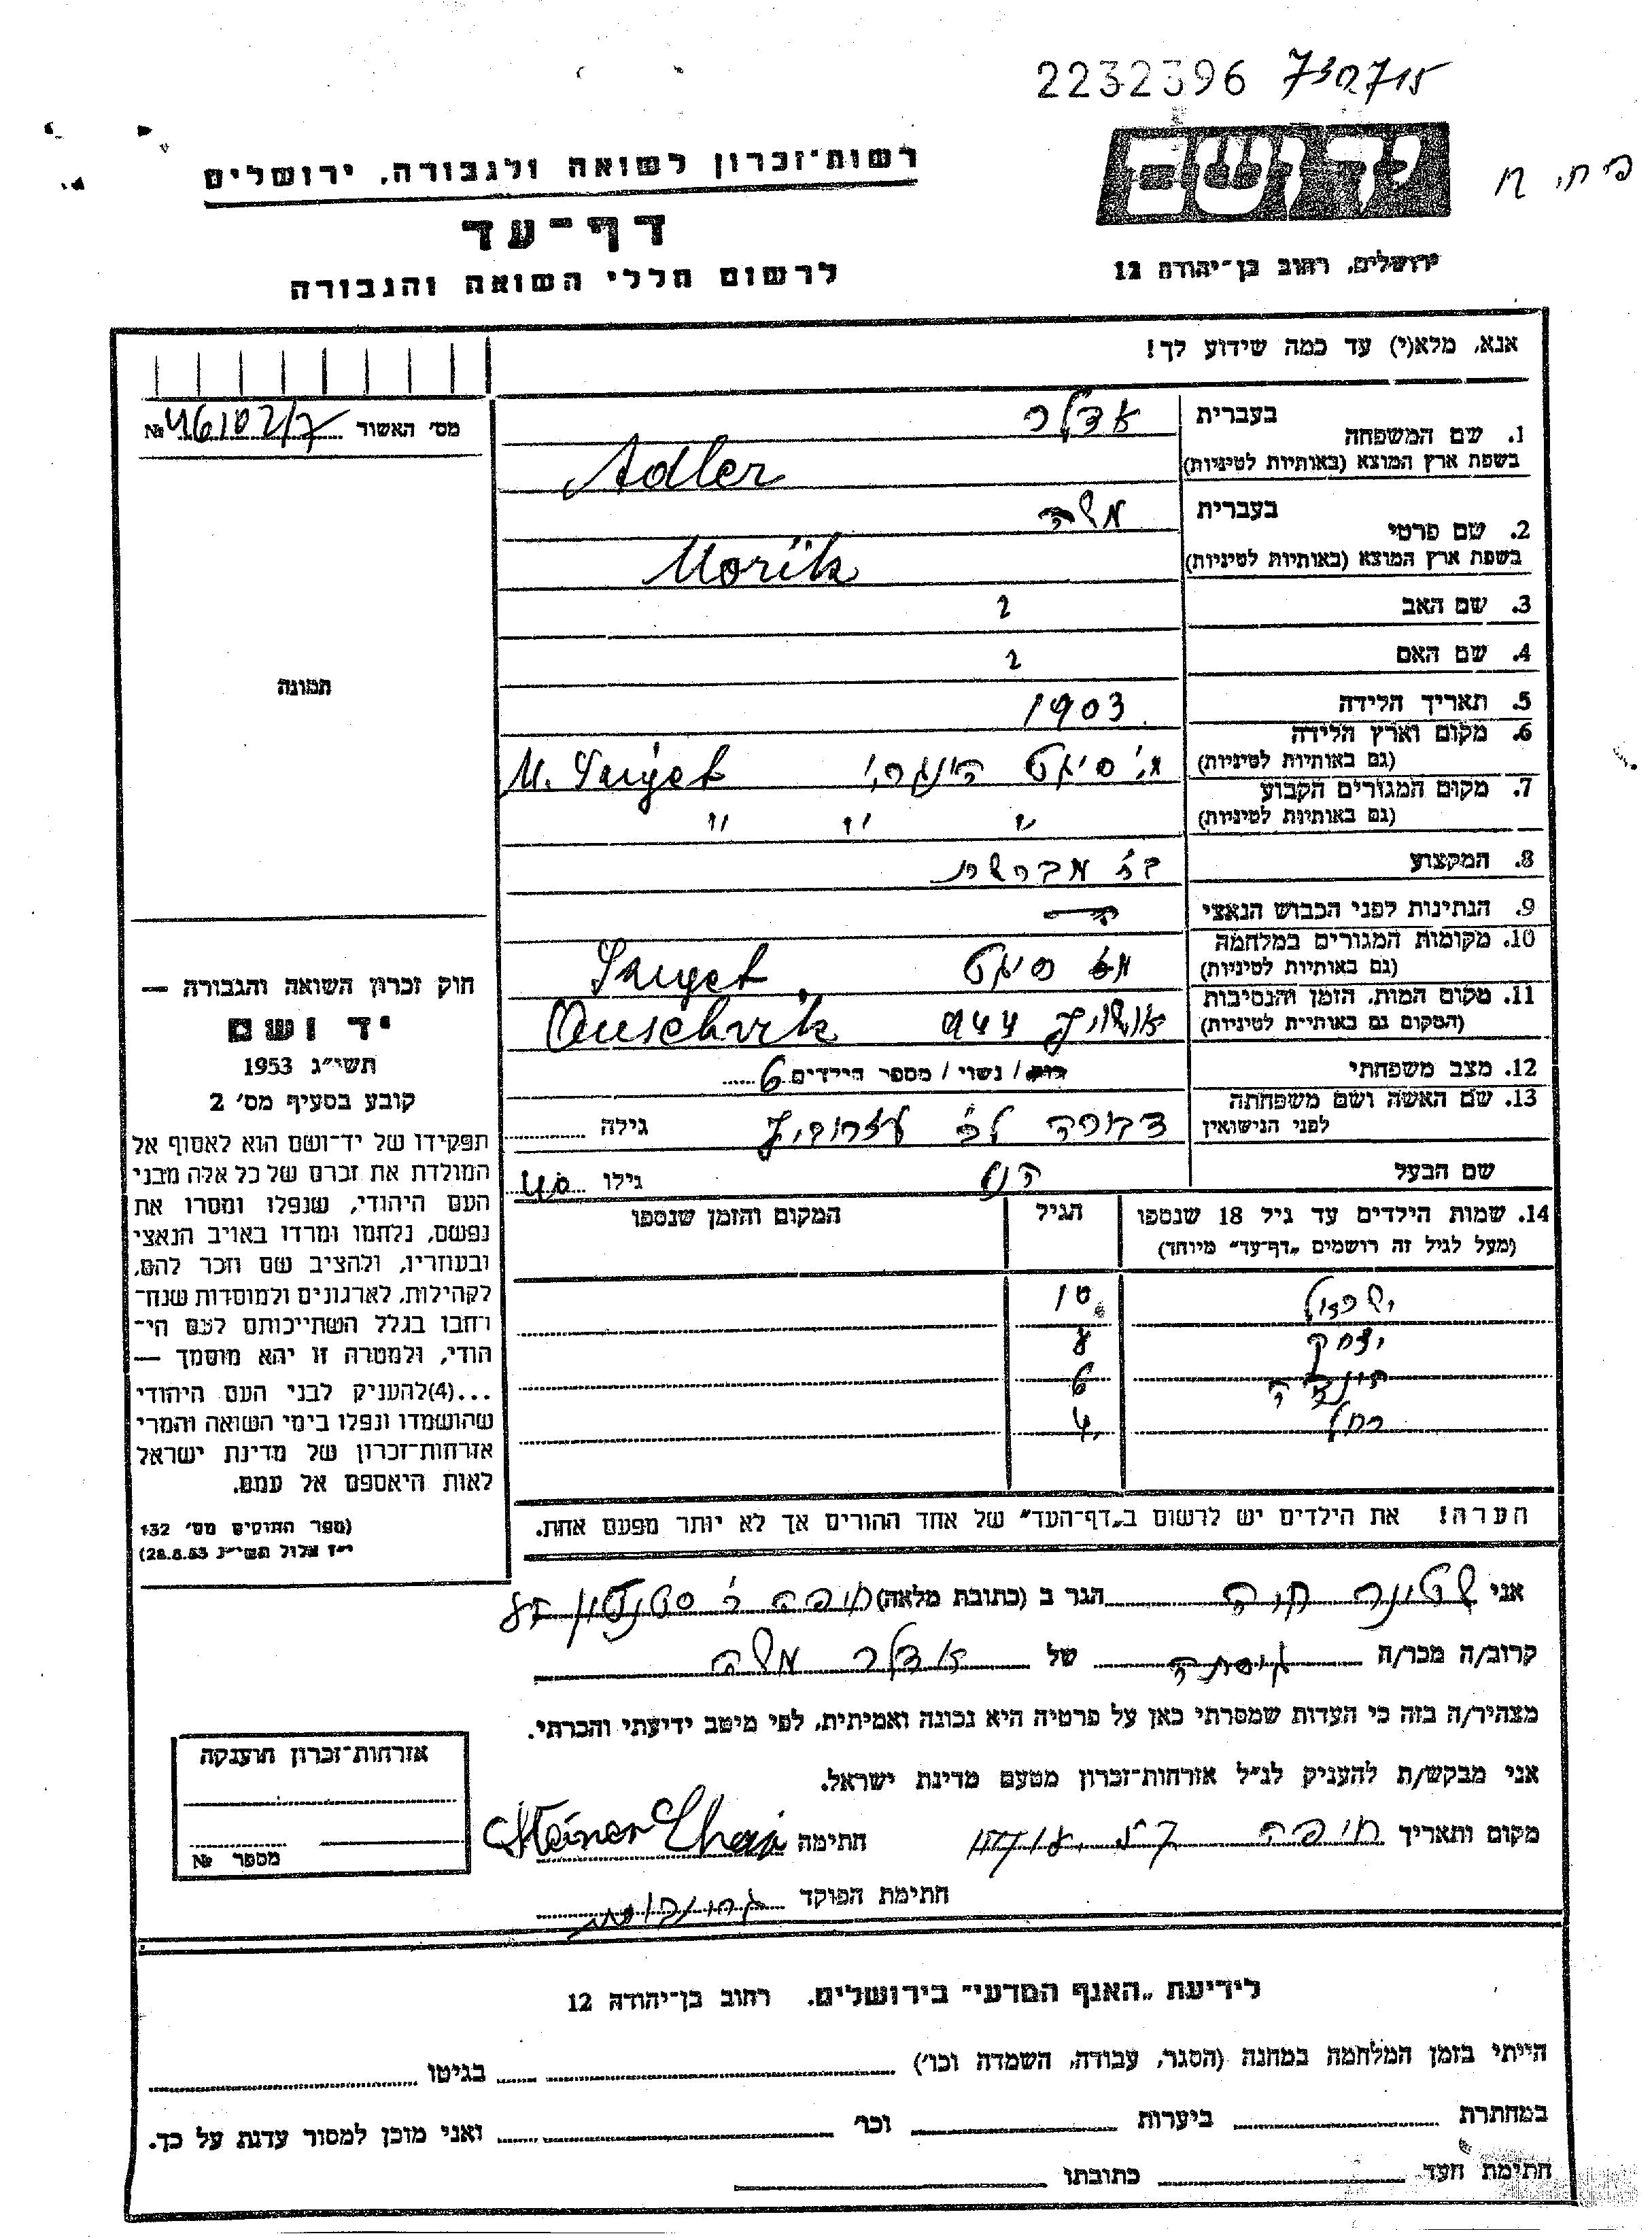 2232396 730715
רשות־זכרון לשואה ולגבורה, ירושלים
יד ושם
דף־עד
לרשום חללי השואה והגבורה
ירושלים, רחוב בן־יהודה 12
אנא, מלא(י) עד כמה שידוע לך!
מס׳ האשור № 46102/7
1. שם המשפחה
בעברית אדלר
בשפת ארץ המוצא (באותיות לטיניות) Adler
2. שם פרטי
בעברית משה
בשפת ארץ המוצא (באותיות לטיניות) Morik
3. שם האב ?
4. שם האם ?
תמונה
5. תאריך הלידה 1903
6. מקום וארץ הלידה
(גם באותיות לטיניות) מ. סיגט הונגרי M. Sziget
7. מקום המגורים הקבוע
(גם באותיות לטיניות) " " "
8. המקצוע מברשות
9. הנתינות לפני הכבוש הנאצי
10. מקומות המגורים במלחמה
(גם באותיות לטיניות) סיגט Sziget
11. מקום המות, הזמן והנסיבות
(המקום גם באותיות לטיניות) אושויץ 944 Auschvik
12. מצב משפחתי רווק / נשוי / מספר הילדים 6
13. שם האשה ושם משפחתה
לפני הנישואין דבורה גילה
שם הבעל גילו 40
14. שמות הילדים עד גיל 18 שנספו הגיל המקום והזמן שנספו
(מעל לגיל זה רושמים „דף־עד״ מיוחד)
ישראל 10
יצחק 8
6
רחל 4
הערה! את הילדים יש לרשום ב„דף־העד״ של אחד ההורים אך לא יותר מפעם אחת.
חוק זכרון השואה והגבורה —
יד ושם
תשי״ג 1953
קובע בסעיף מס׳ 2
תפקידו של יד־ושם הוא לאסוף אל
המולדת את זכרם של כל אלה מבני
העם היהודי, שנפלו ומסרו את
נפשם, נלחמו ומרדו באויב הנאצי
ובעוזריו, ולהציב שם וזכר להם,
לקהילות, לארגונים ולמוסדות שנח־
רחבו בגלל השתייכותם לעם הי־
הודי, ולמטרה זו יהא מוסמך —
...(4)להעניק לבני העם היהודי
שהושמדו ונפלו בימי השואה והמרי
אזרחות־זכרון של מדינת ישראל
לאות היאספם אל עמם.
(ספר החוקים מס׳ 132
י״ז אלול תשי״ג 28.8.53)
אני שטינר חיה הגר ב (כתובת מלאה) חיפה
קרוב/ה מכר/ה גיסתה של אדלר משה
מצהיר/ה בזה כי העדות שמסרתי כאן על פרטיה היא נכונה ואמיתית, לפי מיטב ידיעתי והכרתי.
אני מבקש/ת להעניק לנ״ל אזרחות־זכרון מטעם מדינת ישראל.
מקום ותאריך חיפה חתימה Steiner Chaj
חתימת הפוקד
אזרחות־זכרון הוענקה
מספר №
לידיעת „האגף המדעי״ בירושלים, רחוב בן־יהודה 12
הייתי בזמן המלחמה במחנה (הסגר, עבודה, השמדה וכו׳) בגיטו
במחתרת ביערות וכו׳ ואני מוכן למסור עדות על כך.
חתימת העד כתובתו